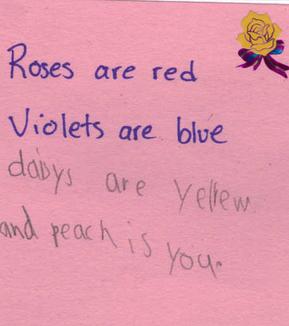 Roses are red
Violets are blue
dabys are yellew
and peach is you.